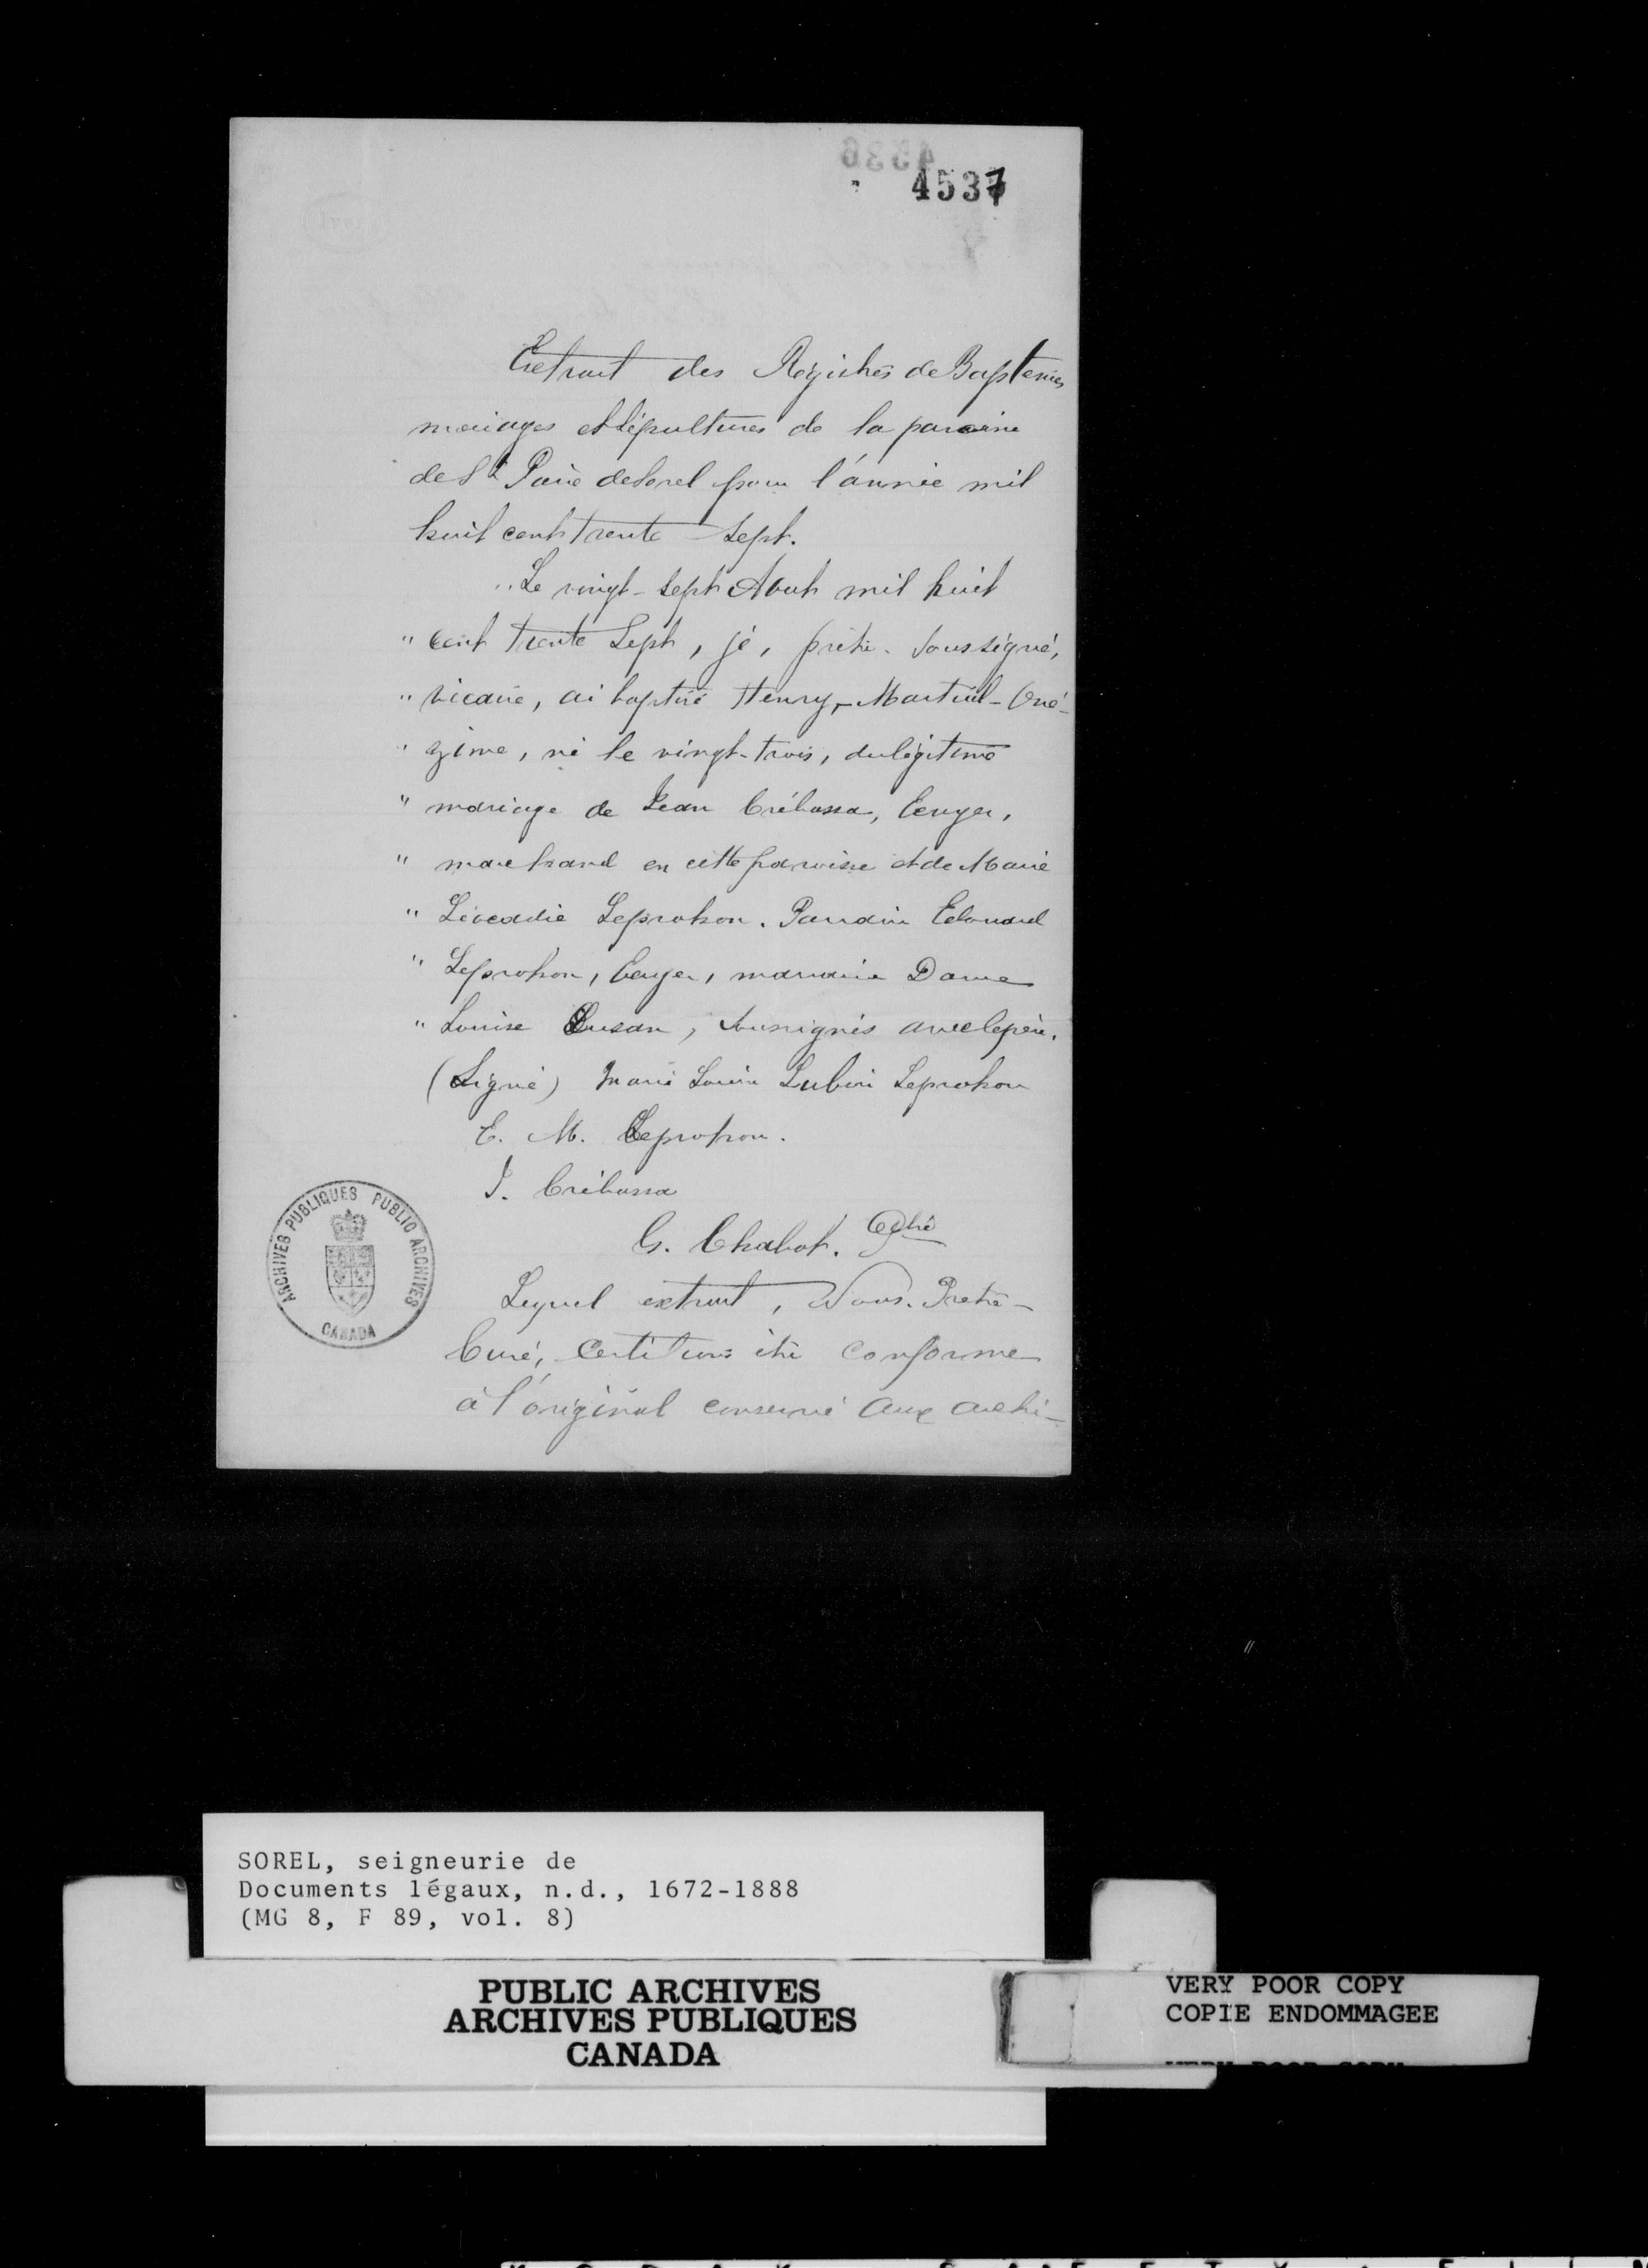 4536
4537
Extrait des Registres de Baptemes
mariages et Sépultures de la paroisse
de St Pierre de Sorel pour l'année mil
huit cent trente-sept.
"Le vingt-sept Aout mil huit
" cent trente Sept, je, prêtre soussigné,
" vicaire, ai baptisé Henry-Martial-Oné-
" zime, né le vingt-trois, du légitime
" mariage de Jean Crébassa, Ecuyer,
" marchand en cette paroisse et de Marie
" Léocadie Leprohon. Parrain Edouard
" Leprohon, Ecuyer, marraine Dame
" Louise, soussignés avec le père.
(Signé) Marie Louise Leprohon
E. M. Leprohon.
J. Crébassa
G. Chabot. Ptre
Lequel extrait, Nous, Prêtre-
Curé, Certifions être conforme
à l'original conservé aux archi-
ARCHIVES PUBLIQUES PUBLIC ARCHIVES
CANADA
SOREL, seigneurie de
Documents légaux, n.d., 1672-1888
(MG 8, F 89, vol. 8)
PUBLIC ARCHIVES
ARCHIVES PUBLIQUES
CANADA
VERY POOR COPY
COPIE ENDOMMAGEE